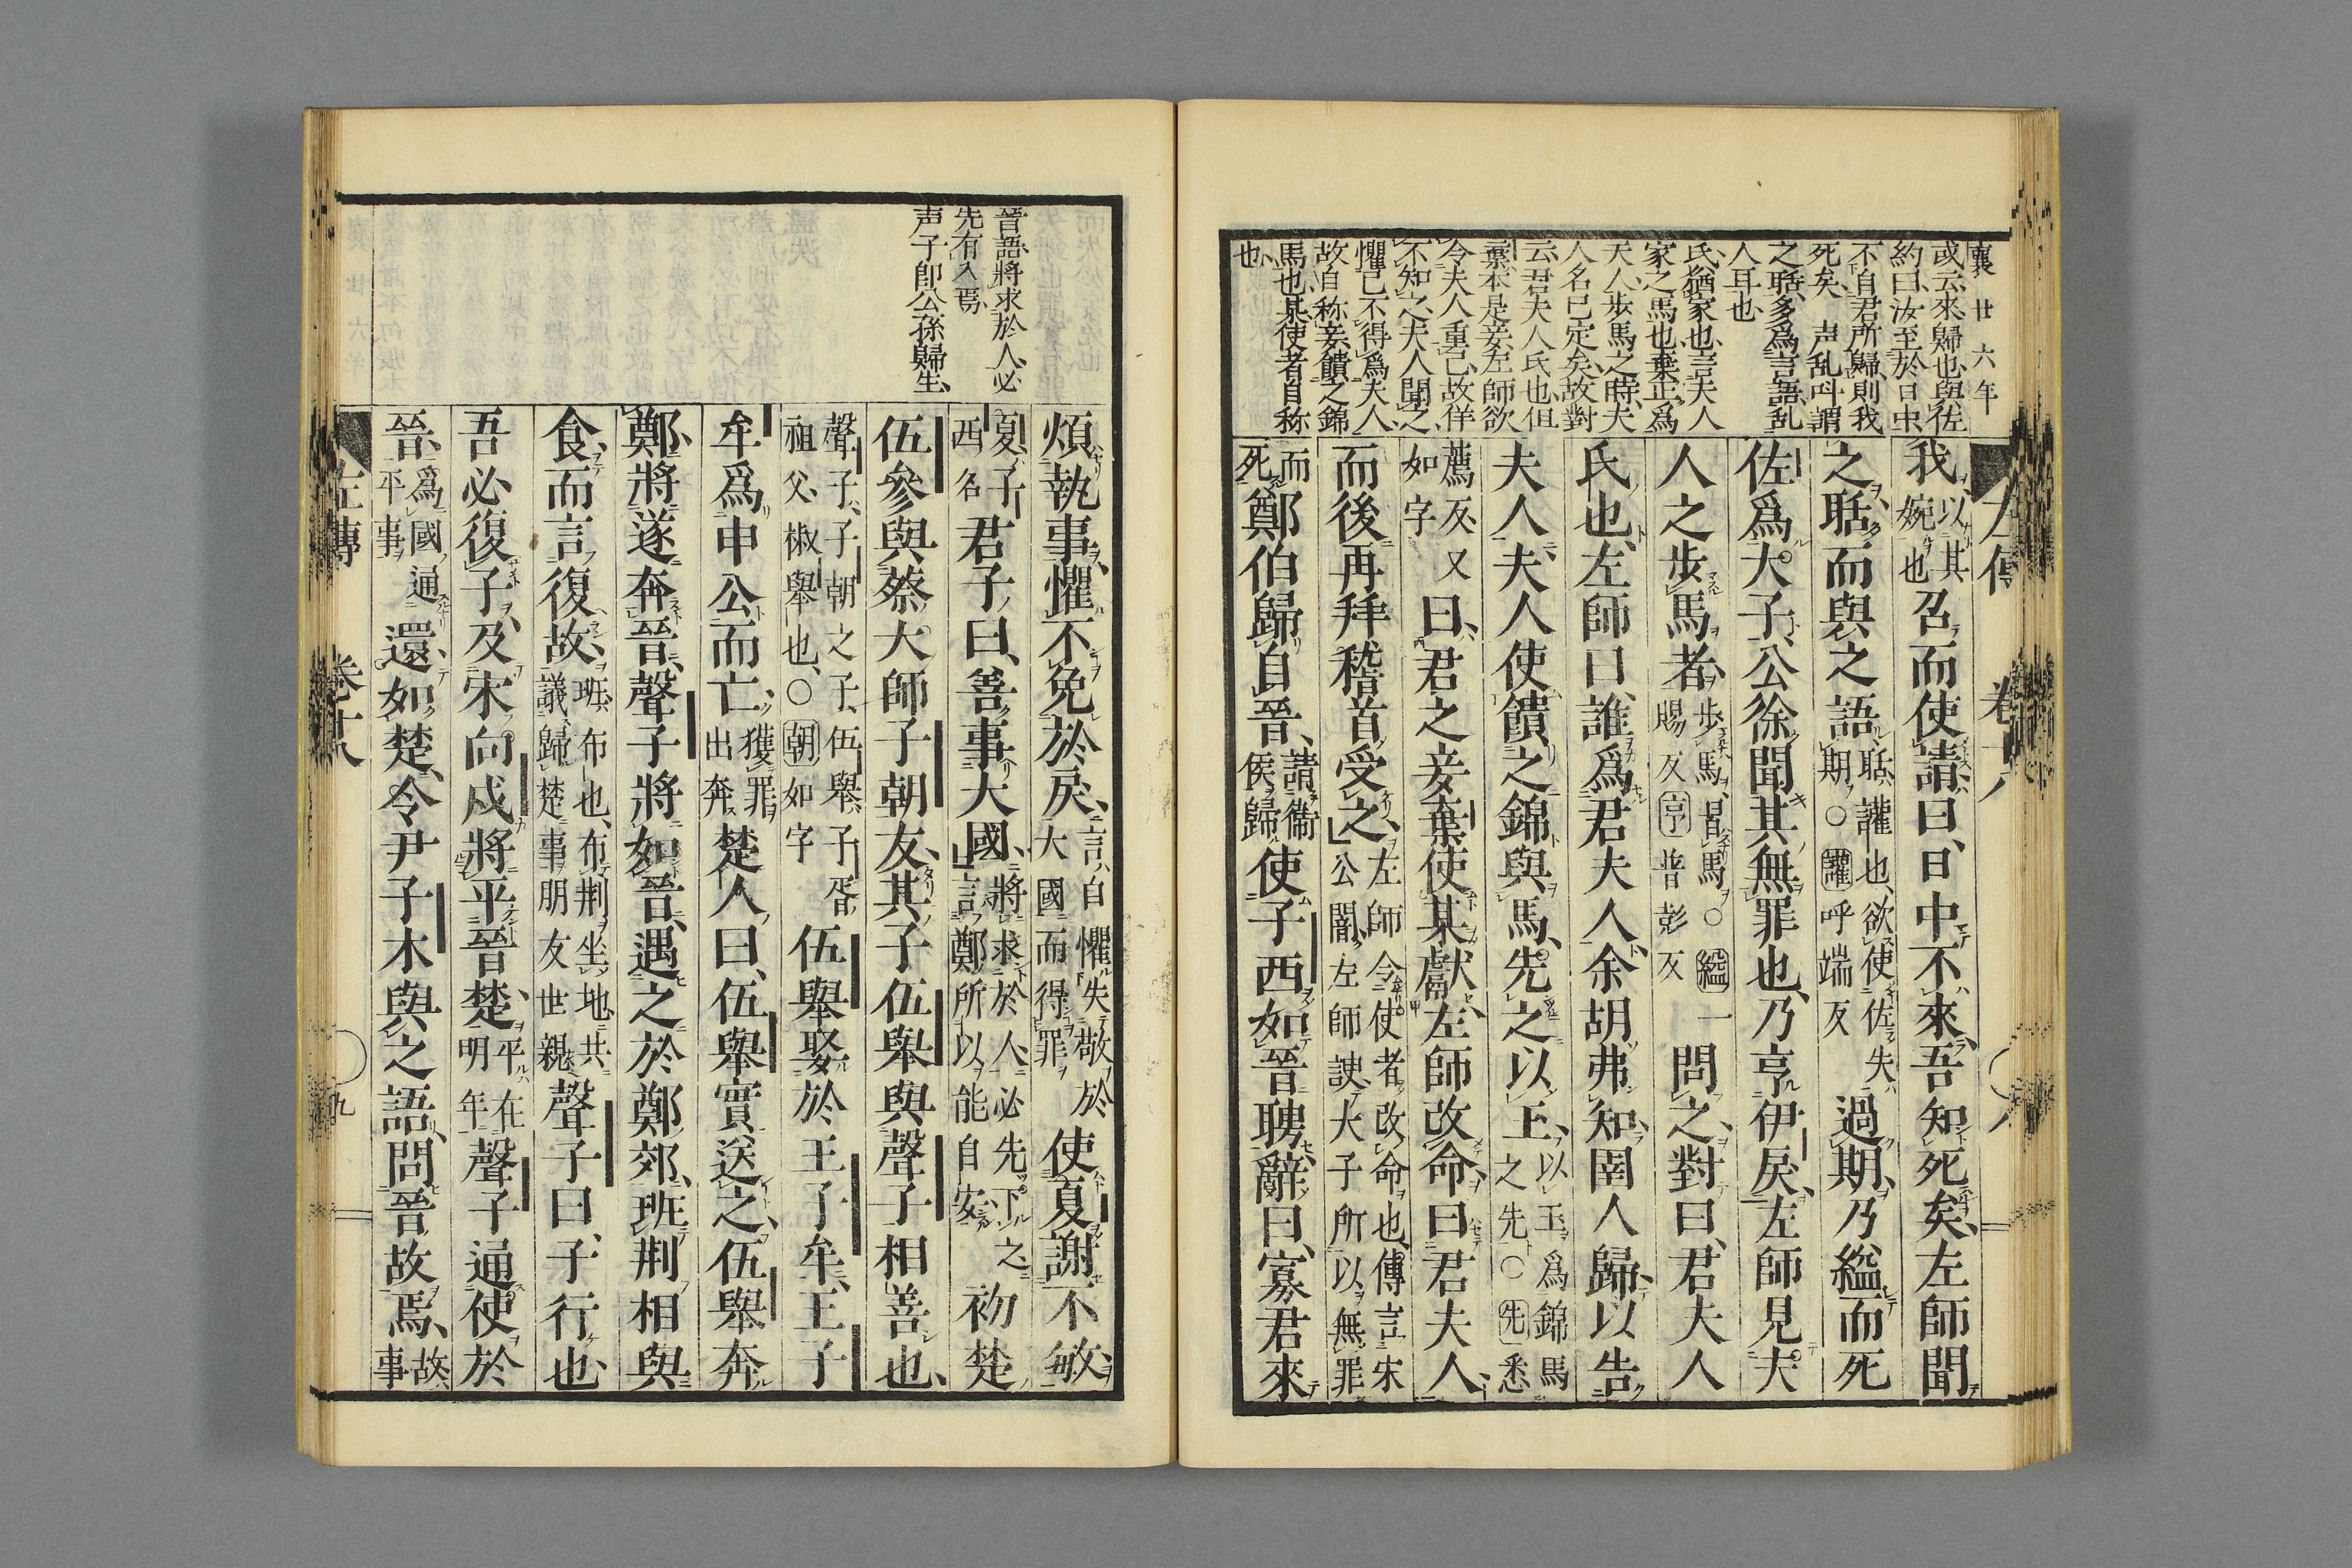 襄 廿六年
或云來歸也與佐
約曰汝至於日中
不自君所歸則我
死矣 声乱呌謂
之聒多爲言語乱
人耳也
氏猶家也言夫人
家之馬也棄正爲
夫人步馬之時夫
人名已定矣故對
云君夫人氏也但
棄本是妾左師欲
令夫人重己故佯
不知之夫人聞之
懼己不得爲夫人
故自称妾饋之錦
馬也某使者自称
也
左傳 卷十八
我以其婉也召而使請曰日中不來吾知死矣左師聞
之聒而與之語聒讙也欲使佐失期○讙呼端反過期乃縊而死
佐爲大子公徐聞其無罪也乃亨伊戾左師見夫
人之步馬者步馬習馬○縊一賜反亨普彭反問之對曰君夫人
氏也左師曰誰爲君夫人余胡弗知圉人歸以告
夫人夫人使饋之錦與馬先之以玉以玉爲錦馬之先○先悉
薦反又如字曰君之妾棄使某獻左師改命曰君夫人
而後再拜稽首受之左師令使者改命也傳言宋公闇左師諛大子所以無罪
而死鄭伯歸自晉請衞侯歸使子西如晉聘辭曰寡君來
晉語將求於人必
先有入焉
声子卽公孫歸生
煩執事懼不免於戾言自懼失敬於大國而得罪使夏謝不敏
夏子西名君子曰善事大國將求於人必先下之言鄭所以能自安初楚
伍參與蔡大師子朝友其子伍舉與聲子相善也
聲子子朝之子伍舉子胥祖父椒舉也○朝如字伍舉娶於王子牟王子
牟爲申公而亡獲罪出奔楚人曰伍舉實送之伍舉奔
鄭將遂奔晉聲子將如晉遇之於鄭郊班荆相與
食而言復故班布也布荆坐地共議歸楚事朋友世親聲子曰子行也
吾必復子及宋向戌將平晉楚平在明年聲子通使於
晉爲國通平事還如楚令尹子木與之語問晉故焉故事
左傳 卷十八 九